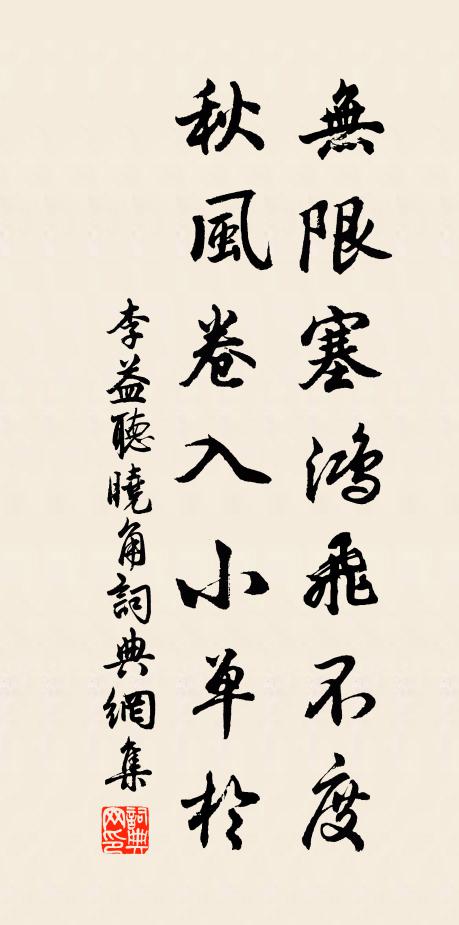 無限塞鴻飛不度
秋風卷入小單於
李益聽曉角詞典網集
詞典网印